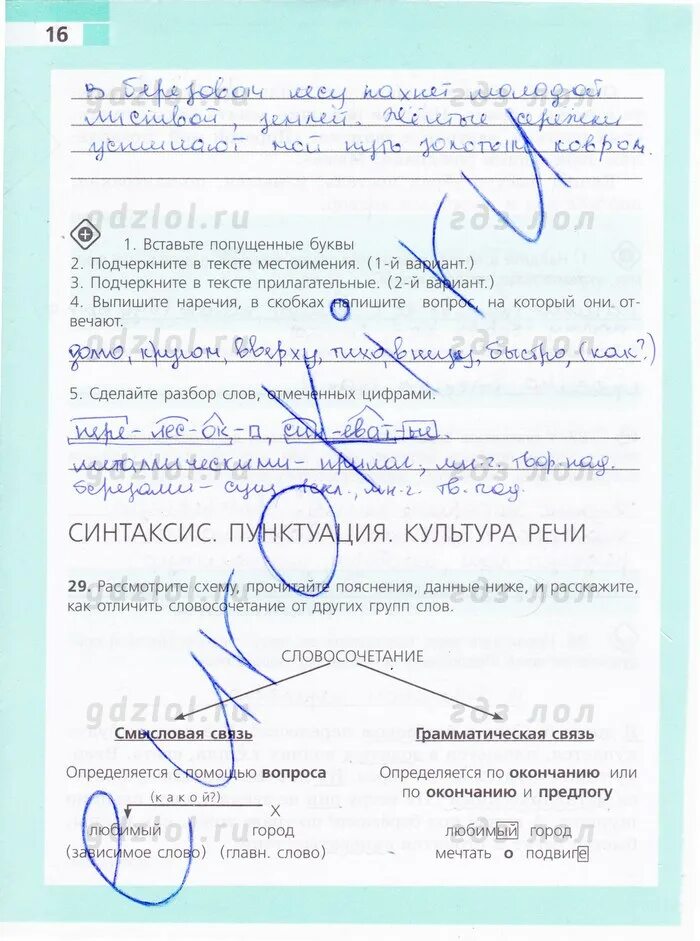 16
В березовом лесу пахнет молодой
листвой, землёй. Жёлтые сережки
усыпают мой путь золотым ковром.
gdzlol.ru гдз лол
1. Вставьте попущенные буквы
2. Подчеркните в тексте местоимения. (1-й вариант.)
3. Подчеркните в тексте прилагательные. (2-й вариант.)
4. Выпишите наречия, в скобках напишите вопрос, на который они от-
вечают.
кругом, вверху, тихо, внизу, быстро, (как?)
5. Сделайте разбор слов, отмеченных цифрами.
пере-лес-ок-, син-еват-ые.
металлическими – прилаг., мн.ч. твор.пад.
березами – сущ. 1скл., мн.ч. тв. пад.
СИНТАКСИС. ПУНКТУАЦИЯ. КУЛЬТУРА РЕЧИ
29. Рассмотрите схему, прочитайте пояснения, данные ниже, и расскажите,
как отличить словосочетание от других групп слов.
СЛОВОСОЧЕТАНИЕ
Смысловая связь Грамматическая связь
Определяется с помощью вопроса Определяется по окончанию или
по окончанию и предлогу
(какой?) X
любимый город любимый город
(зависимое слово) (главн. слово) мечтать о подвиге